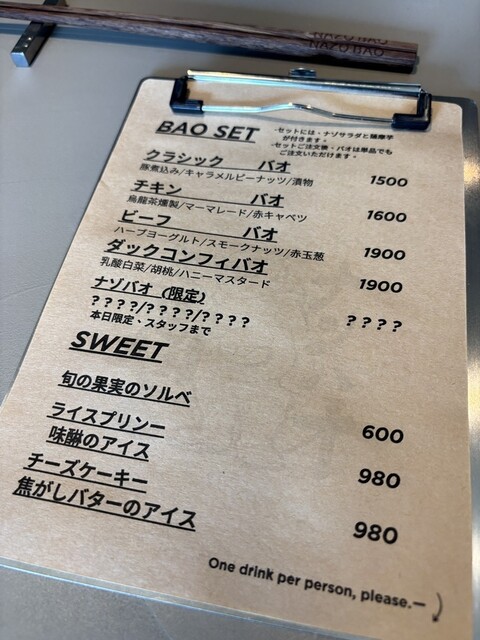 NAZO BAO
NAZO BAO
BAO SET
・セットには、ナゾサラダと薩摩芋
が付きます。
・セットご注文後、バオは単品でも
ご注文いただけます。
クラシック バオ
豚煮込み/キャラメルピーナッツ/漬物 1500
チキン バオ
烏龍茶燻製/マーマレード/赤キャベツ 1600
ビーフ バオ
ハーブヨーグルト/スモークナッツ/赤玉葱 1900
ダックコンフィバオ
乳酸白菜/胡桃/ハニーマスタード 1900
ナゾバオ (限定)
????/????/???? ????
本日限定、スタッフまで
SWEET
旬の果実のソルベ
600
ライスプリンー
味醂のアイス
980
チーズケーキー
焦がしバターのアイス
980
One drink per person, please.ー